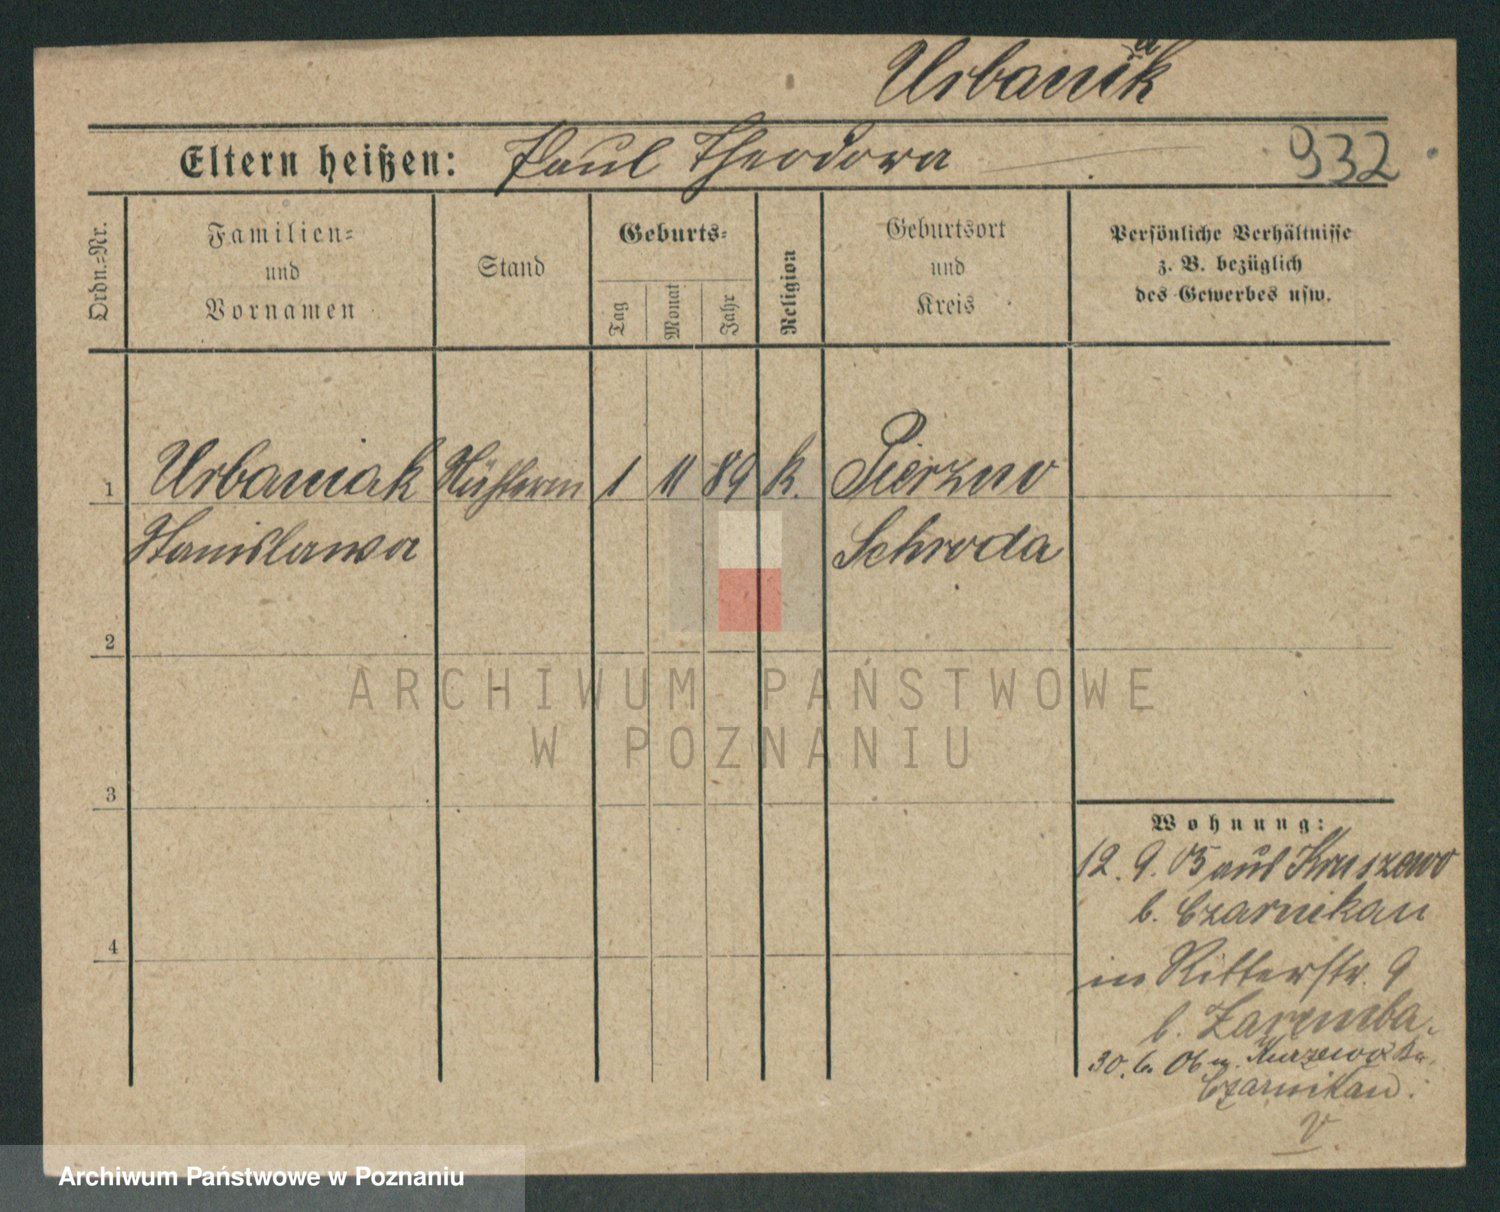 Urbaniak
Eltern heißen: Paul Theodora 932
Ordn.-Nr.
Familien-
und
Vornamen
Stand
Geburts-
Tag
Monat
Jahr
Religion
Geburtsort
und
Kreis
Persönliche Verhältnisse
z. B. bezüglich
des Gewerbes usw.
1 Urbaniak 1 11 89 k. Pierzno
Stanislawa Schroda
2
3
4
Wohnung:
12. 9. 05 aus Kruszewo
b. Czarnikau
in Ritterstr. 9
b. Zaremba.
30. 6. 06 n.
Czarnikau.
ARCHIWUM PAŃSTWOWE
W POZNANIU
Archiwum Państwowe w Poznaniu